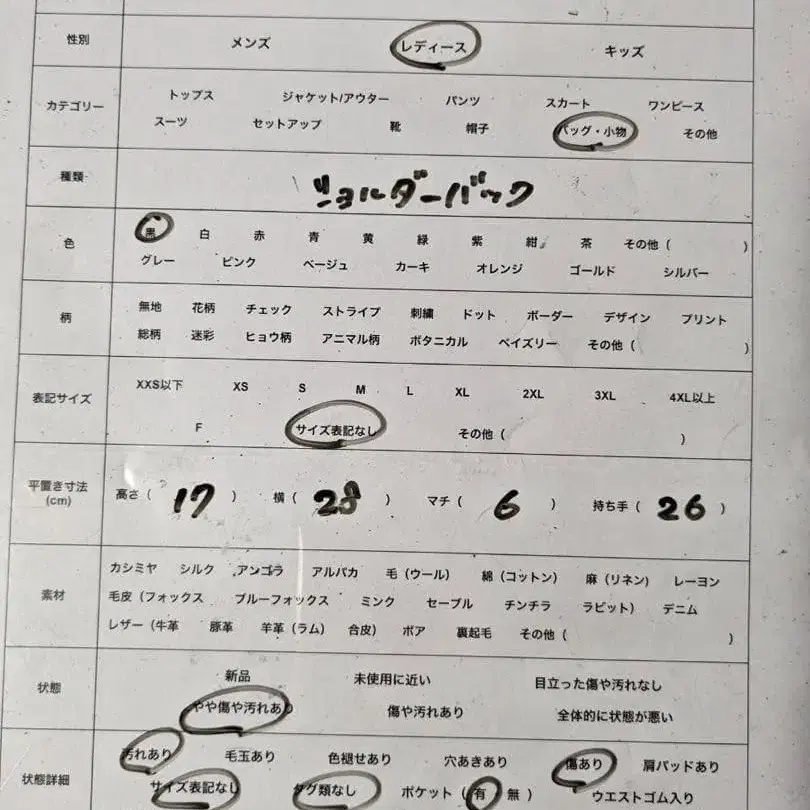 性別 メンズ レディース キッズ
カテゴリー トップス ジャケット/アウター パンツ スカート ワンピース
スーツ セットアップ 靴 帽子 バッグ・小物 その他
種類 ショルダーバック
色 黒 白 赤 青 黄 緑 紫 紺 茶 その他 ( )
グレー ピンク ベージュ カーキ オレンジ ゴールド シルバー
柄 無地 花柄 チェック ストライプ 刺繍 ドット ボーダー デザイン プリント
総柄 迷彩 ヒョウ柄 アニマル柄 ボタニカル ペイズリー その他 ( )
表記サイズ XXS以下 XS S M L XL 2XL 3XL 4XL以上
F サイズ表記なし その他 ( )
平置き寸法 (cm) 高さ ( 17 ) 横 ( 28 ) マチ ( 6 ) 持ち手 ( 26 )
素材 カシミヤ シルク アンゴラ アルパカ 毛 (ウール) 綿 (コットン) 麻 (リネン) レーヨン
毛皮 (フォックス ブルーフォックス ミンク セーブル チンチラ ラビット) デニム
レザー (牛革 豚革 羊革 (ラム) 合皮) ボア 裏起毛 その他 ( )
状態 新品 未使用に近い 目立った傷や汚れなし
やや傷や汚れあり 傷や汚れあり 全体的に状態が悪い
状態詳細 汚れあり 毛玉あり 色褪せあり 穴あきあり 傷あり 肩パッドあり
サイズ表記なし タグ類なし ポケット ( 有 無 ) ウエストゴム入り